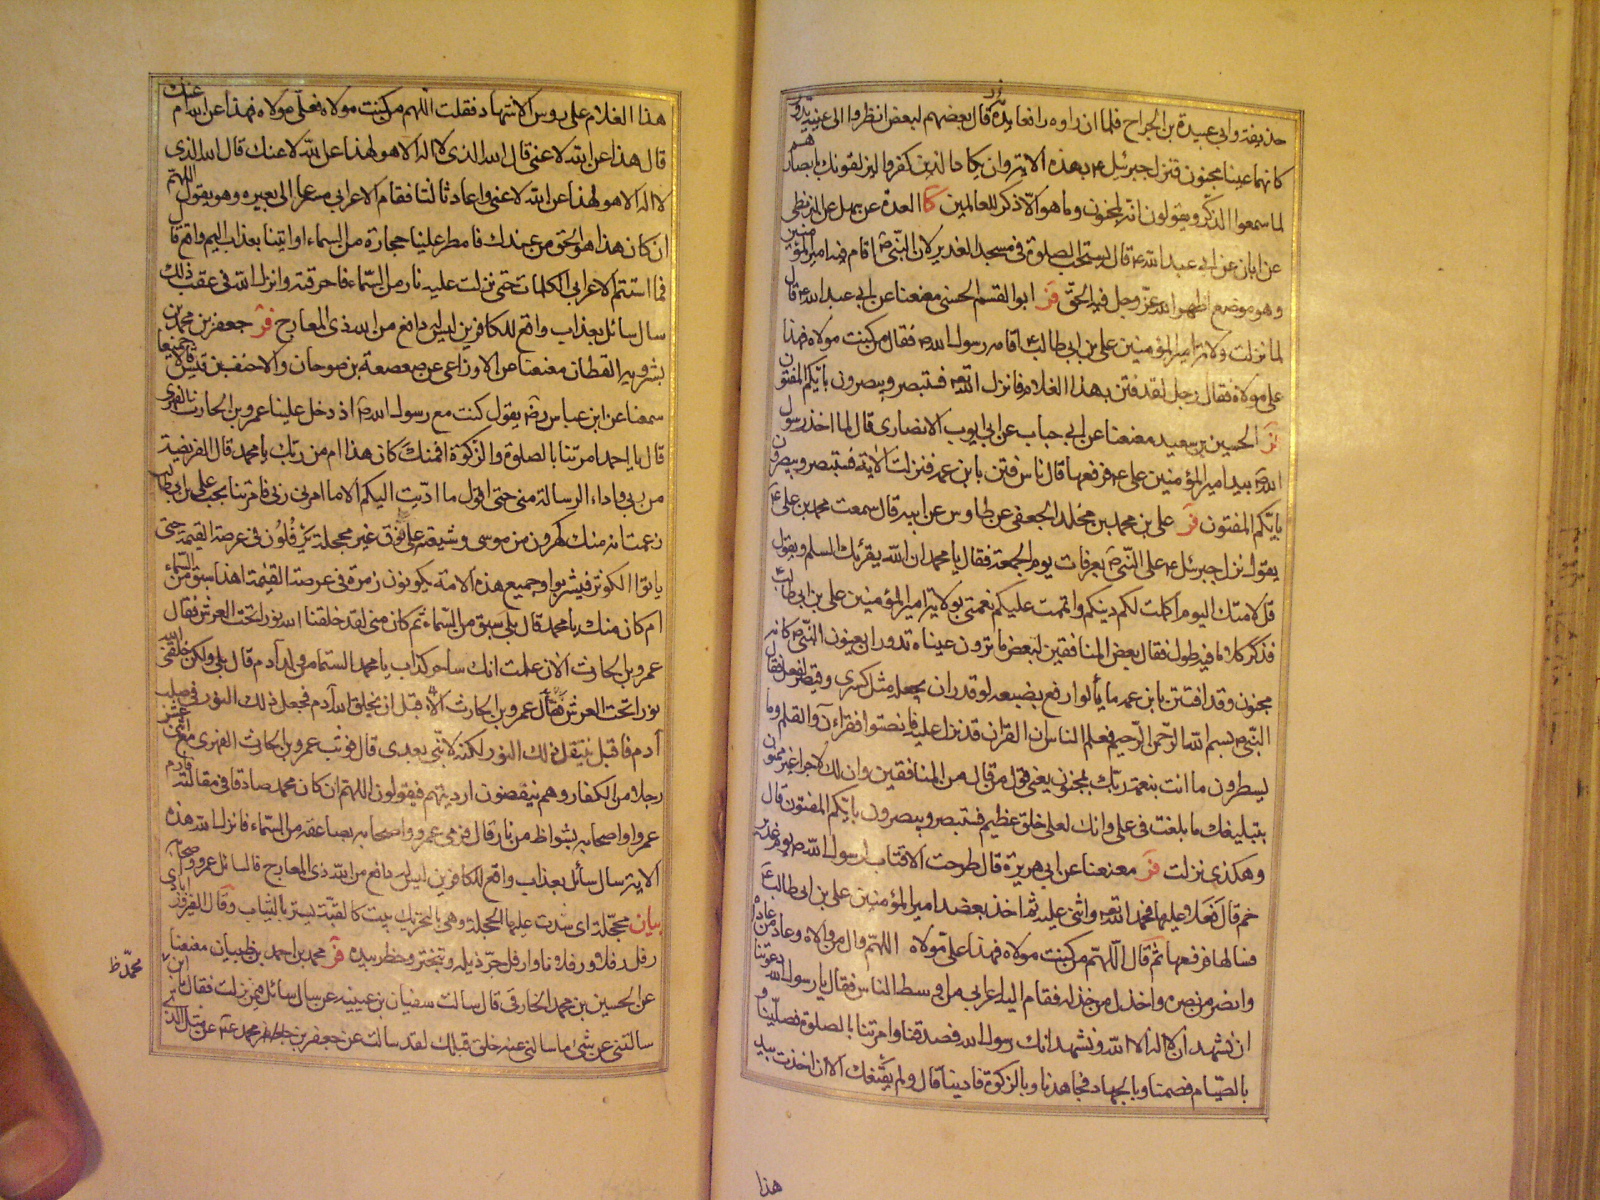 حذيفة وابي عبيدة بن الجراح فلما ان راوه رافعا يده قال بعضهم لبعض انظروا الى عينيه تدور
كانهما عينا مجنون فنزل جبرئيل ع بهذه الاية وان يكاد الذين كفروا ليزلقونك بابصارهم
لما سمعوا الذكر ويقولون انه لمجنون وما هو الا ذكر للعالمين كا العدة عن سهل عن البزنطى
عن ابان عن ابي عبد الله ع قال يستحب الصلوة في مسجد الغدير لان النبي ص اقام فيه امير المؤمنين
وهو موضع اظهر الله عز وجل فيه الحق فر ابو القسم الحسنى معنعنا عن ابي عبد الله ع قال
لما نزلت ولاية امير المؤمنين علي بن ابي طالب ع اقامه رسول الله ص فقال من كنت مولاه فهذا
علي مولاه فقال رجل لقد فتن بهذا الغلام فانزل الله تع فستبصر ويبصرون بايكم المفتون
فر الحسين بن سعيد معنعنا عن ابي حباب عن ابي ايوب الانصارى قال لما اخذ رسول
الله ص بيد امير المؤمنين علي ع فرفعها قال ناس فتن بابن عمه فنزلت الاية فستبصر ويبصرون
بايكم المفتون فر علي بن محمد بن مخلد الجعفى عن طاوس عن ابيه قال سمعت محمد بن علي ع
يقول نزل جبرئيل ع على النبي ص بعرفات يوم الجمعة فقال يا محمد ان الله يقرئك السلم ويقول
قل لامتك اليوم اكملت لكم دينكم واتممت عليكم نعمتى بولاية امير المؤمنين علي بن ابي طالب ع
فذكر كلاما فيه طول فقال بعض المنافقين لبعض ما ترون عيناه تدوران يعنون النبي ص كانه
مجنون وقد افتتن بابن عمه ما يألو رفع بضبعه لو قدر ان يجعله مثل كسرى وقيصر لفعل فقال
النبي ص بسم الله الرحمن الرحيم فعلم الناس ان القران قد نزل عليه فانصتوا فقرا ن والقلم وما
يسطرون ما انت بنعمة ربك بمجنون يعنى قول من قال من المنافقين وان لك لاجرا غير ممنون
بتبليغك ما بلغت في علي وانك لعلى خلق عظيم فستبصر ويبصرون بايكم المفتون قال
وهكذى نزلت فر معنعنا عن ابي هريرة قال طرحت الاقتاب لرسول الله ص يوم غدير
خم قال فعلا عليها فحمد الله تع واثنى عليه ثم اخذ بعضد امير المؤمنين علي بن ابي طالب ع
فسالها فرفعها ثم قال اللهم من كنت مولاه فهذا علي مولاه اللهم وال من والاه وعاد من عاداه
وانصر من نصره واخذل من خذله فقام اليه اعرابي من وسط الناس فقال يا رسول الله دعوتنا
ان نشهد ان لا اله الا الله ونشهد انك رسول الله فصدقنا وامرتنا بالصلوة فصلينا و
بالصيام فصمنا وبالجهاد فجاهدنا وبالزكوة فادينا قال ولم يقنعك الا ان اخذت بيد
هذا
هذا الغلام على رؤس الاشهاد فقلت اللهم من كنت مولاه فعلي مولاه فهذا عن الله ام عنك
قال هذا عن الله لا عنى قال الله الذى لا اله الا هو لهذا عن الله لا عنك قال الله الذى
لا اله الا هو لهذا عن الله لا عنى واعاد ثالثا فقام الاعرابي مسرعا الى بعيره وهو يقول اللهم
ان كان هذا هو الحق من عندك فامطر علينا حجارة من السماء او ايتنا بعذاب اليم واقع قال
فما استتم الاعرابي الكلمات حتى نزلت عليه نار من السماء فاحرقته وانزل الله في عقب ذلك
سال سائل بعذاب واقع للكافرين ليس له دافع من الله ذى المعارج فر جعفر بن محمد بن
بشرويه القطان معنعنا عن الاوزاعى عن صعصعة بن صوحان والاحنف بن قيس قالا جميعا
سمعنا عن ابن عباس رض يقول كنت مع رسول الله ص اذ دخل علينا عمرو بن الحارث الفهرى
قال يا احمد امرتنا بالصلوة والزكوة افمنك كان هذا ام من ربك يا محمد قال الفريضة
من ربي واداء الرسالة منى حتى اقول ما اديت اليكم الا ما امرنى ربي فامرتنا بحب علي بن ابي طالب
زعمت انه منك كهرون من موسى وشيعته على نوق غر محجلة يرفلون في عرصة القيمة حتى
ياتوا الكوثر فيشربوا وجميع هذه الامة يكونون زمرة في عرصة القيمة اهذا سبق من السماء
ام كان منك يا محمد قال بلى سبق من السماء ثم كان منى لقد خلقنا الله نورا تحت العرش فقال
عمرو بن الحارث الان علمت انك ساحر كذاب يا محمد الستما من ولد آدم قال بلى ولكن خلقنى الله
نورا تحت العرش قبل ان يخلق الله آدم فقال عمرو بن الحارث فجعل ذلك النور في صلب
آدم فاقبل ينتقل ذلك النور لكنه لا نبي بعدى قال فوثب عمرو بن الحارث الفهرى مع اثنى عشر
رجلا من الكفار وهم ينفضون ارديتهم فيقولون اللهم ان كان محمد صادقا في مقالته فارم
عمروا واصحابه بشواظ من نار قال فرمى عمرو واصحابه بصاعقة من السماء فانزل الله هذه
الاية سال سائل بعذاب واقع للكافرين ليس له دافع من الله ذى المعارج فالسائل عمرو واصحابه
بيان محجلة اى شدت عليها الحجلة وهي بالتحريك بيت كالقبة يستر بالثياب وقال الفيروزآبادى
رفل رفلا ورفلانا وارفل جر ذيله وتبختر وخطر بيده فر محمد بن احمد بن ظبيان معنعنا
محمد ظ
عن الحسين بن محمد الخارقى قال سالت سفيان بن عيينه عن سال سائل فيمن نزلت فقال يا ابن
سالتنى عن شئ ما سالنى عنه خلق قبلك لقد سالت عن جعفر بن محمد ع عن مثل الذى